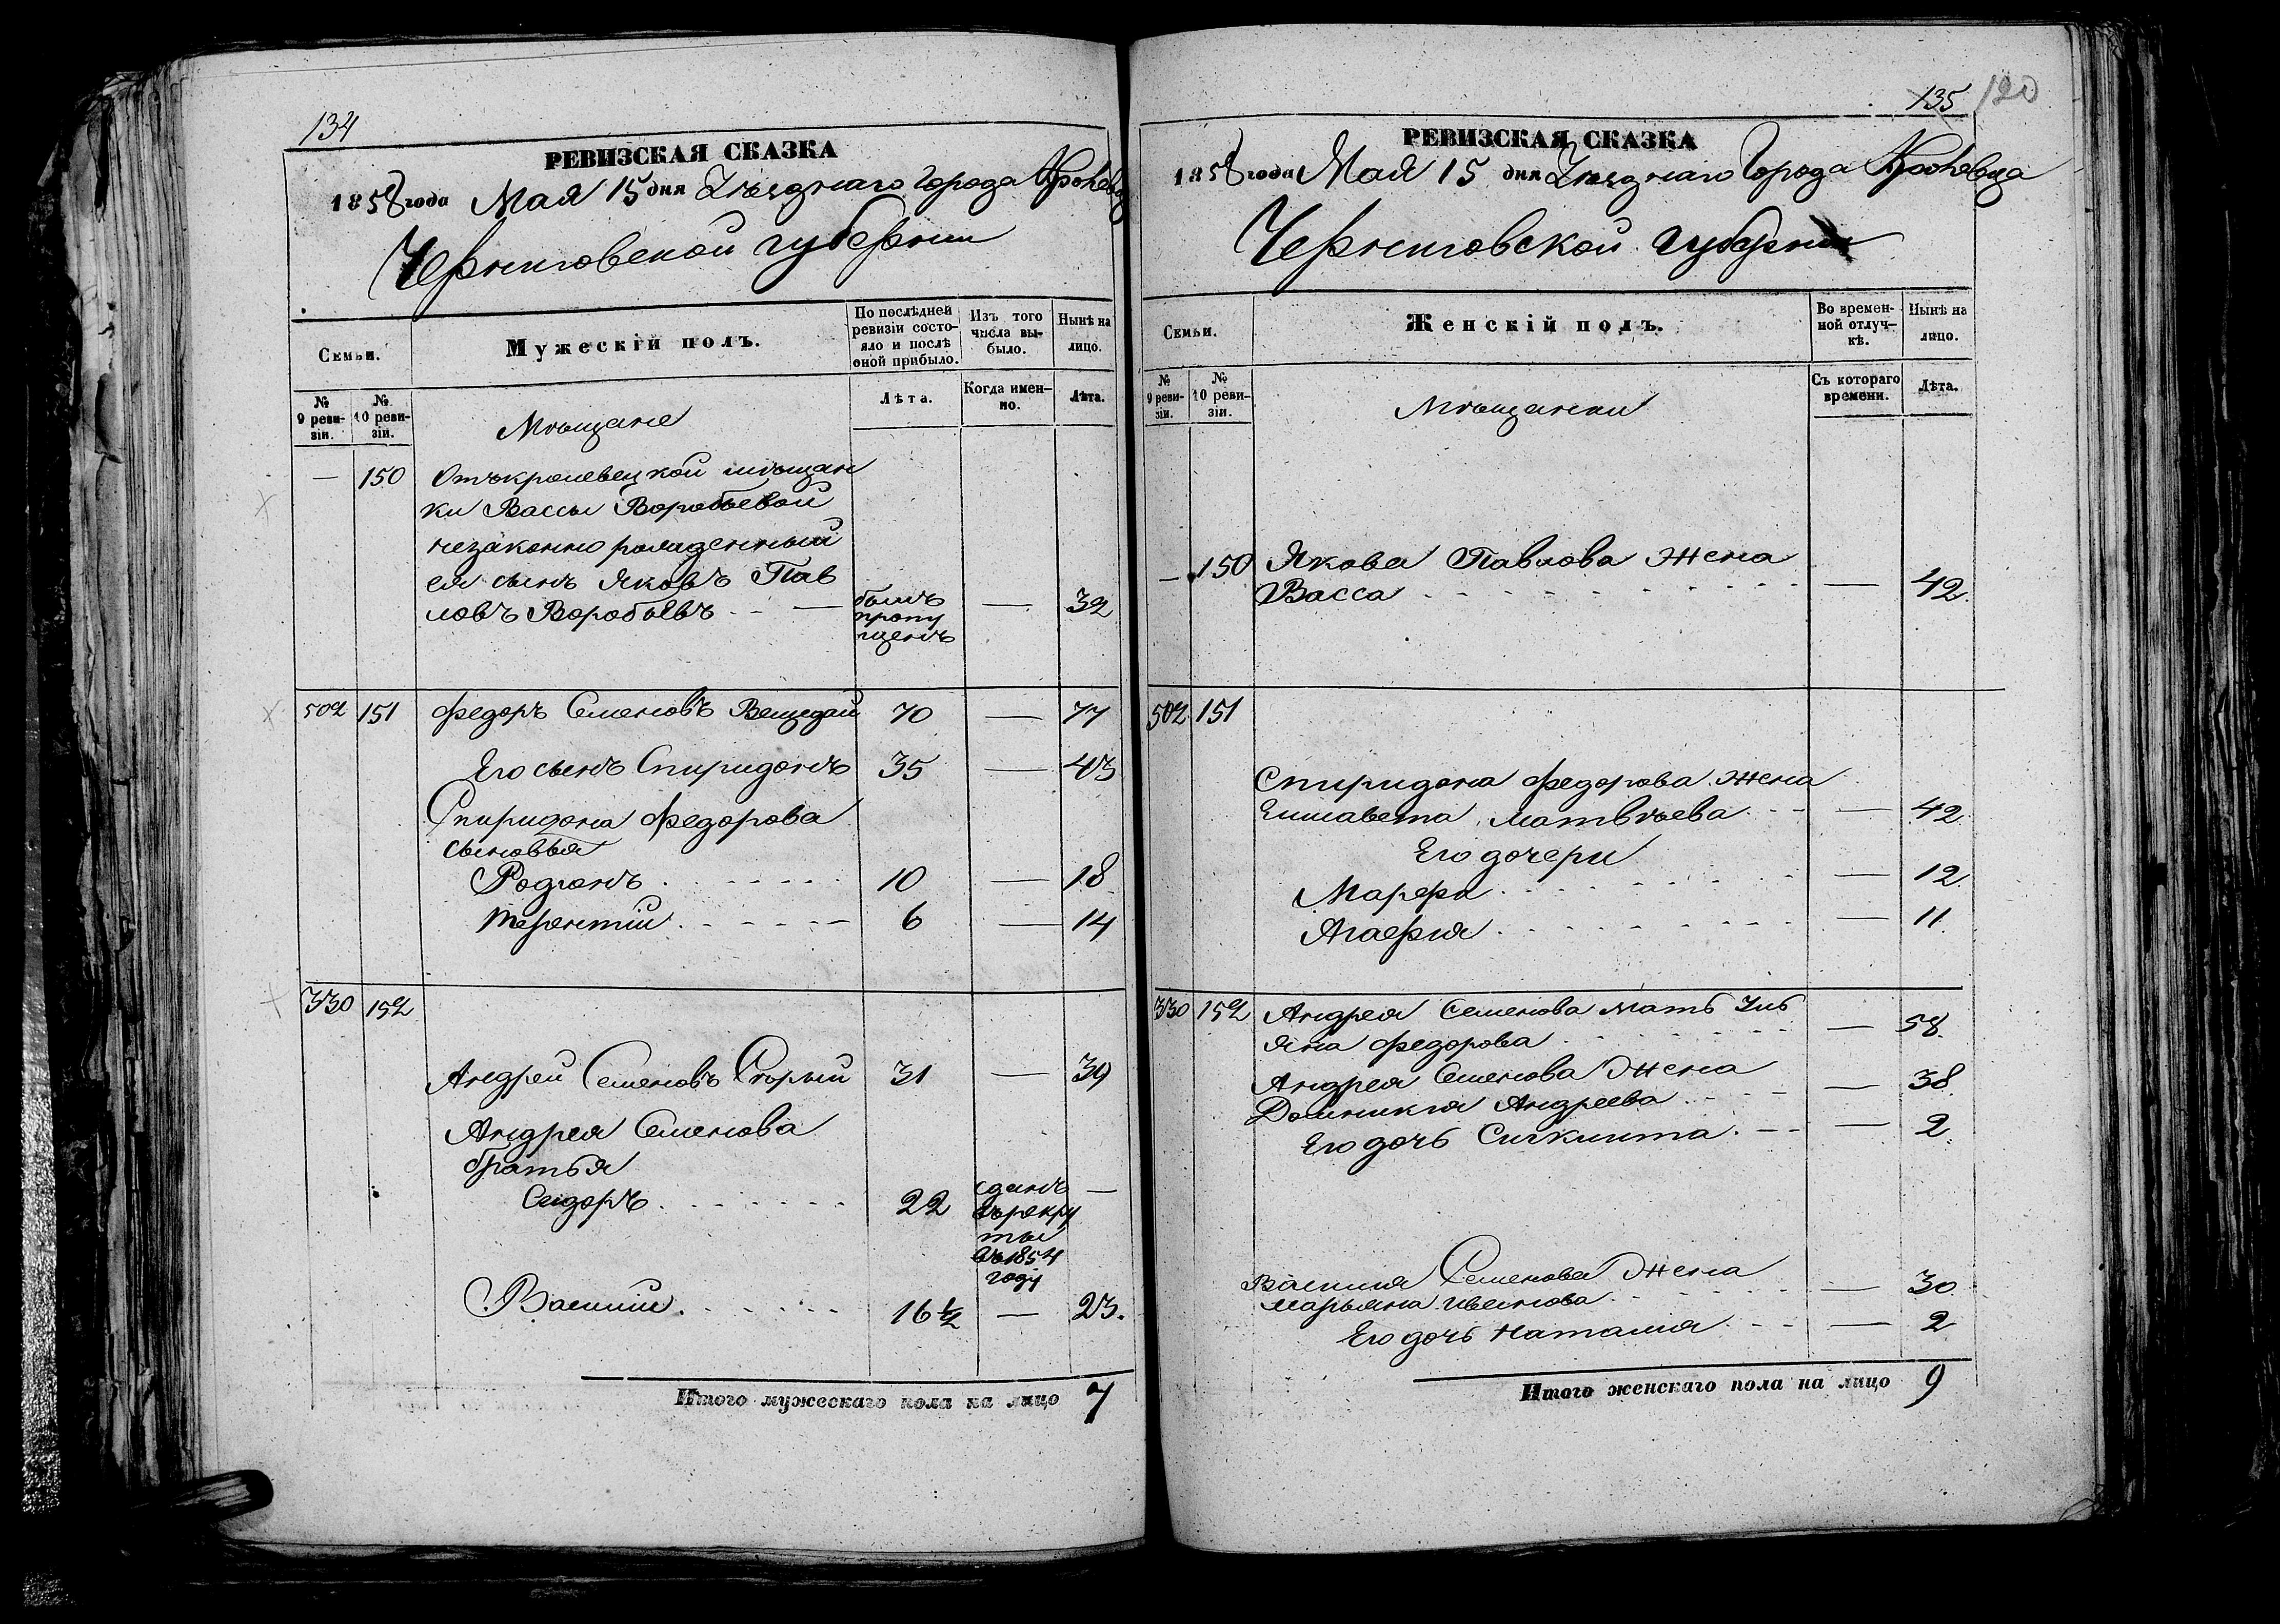 134
РЕВИЗСКАЯ СКАЗКА
1858 года Мая 15 дня Уѣзднаго города Кролевца
Черниговской губернии
Семьи.
Мужескій полъ.
По послѣдней ревизіи состояло и послѣ оной прибыло.
Изъ того числа выбыло.
Нынѣ на лицо.
№ 9 ревизіи.
№ 10 ревизіи.
Лѣта.
Когда именно.
Лѣта.
Мѣщане
— 150 Отъ кролевецкой мѣщан
ки Вассы Воробьевой
незаконно рожденный
ея сынъ Яковъ Пав
ловъ Воробьевъ - - — былъ пропу щенъ — 32
502 151 Федоръ Семеновъ 70 — 77
Его сынъ Спиридонъ 35 — 43
Спиридона Федорова
сыновья
Родіонъ 10 — 18
Терентій 6 — 14
330 152
Андрей Семеновъ 31 — 39
Андрея Семенова
братья
Сидоръ 22 сданъ въ рекру ты въ 1854 году —
Василий 16½ — 23.
Итого мужескаго пола на лицо 7
135 120
РЕВИЗСКАЯ СКАЗКА
1858 года Мая 15 дня Уѣзднаго Города Кролевца
Черниговской губернии
Семьи.
Женскій полъ.
Во временной отлучкѣ.
Нынѣ на лицо.
№ 9 ревизіи.
№ 10 ревизіи.
Съ котораго времени.
Лѣта.
Мѣщанки
— 150 Якова Павлова жена
Васса — 42
502 151
Спиридона Федорова жена
Елисавета Матвѣева — 42
Его дочери
Марфа — 12
Агафія — 11
330 152 Андрея Семенова мать Уль
яна Федорова — 58
Андрея Семенова жена
Домникія Андреева — 38
Его дочь — 2
Василия Семенова жена
Марьяна Иванова — 30
Его дочь Наталия — 2
Итого женскаго пола на лицо 9